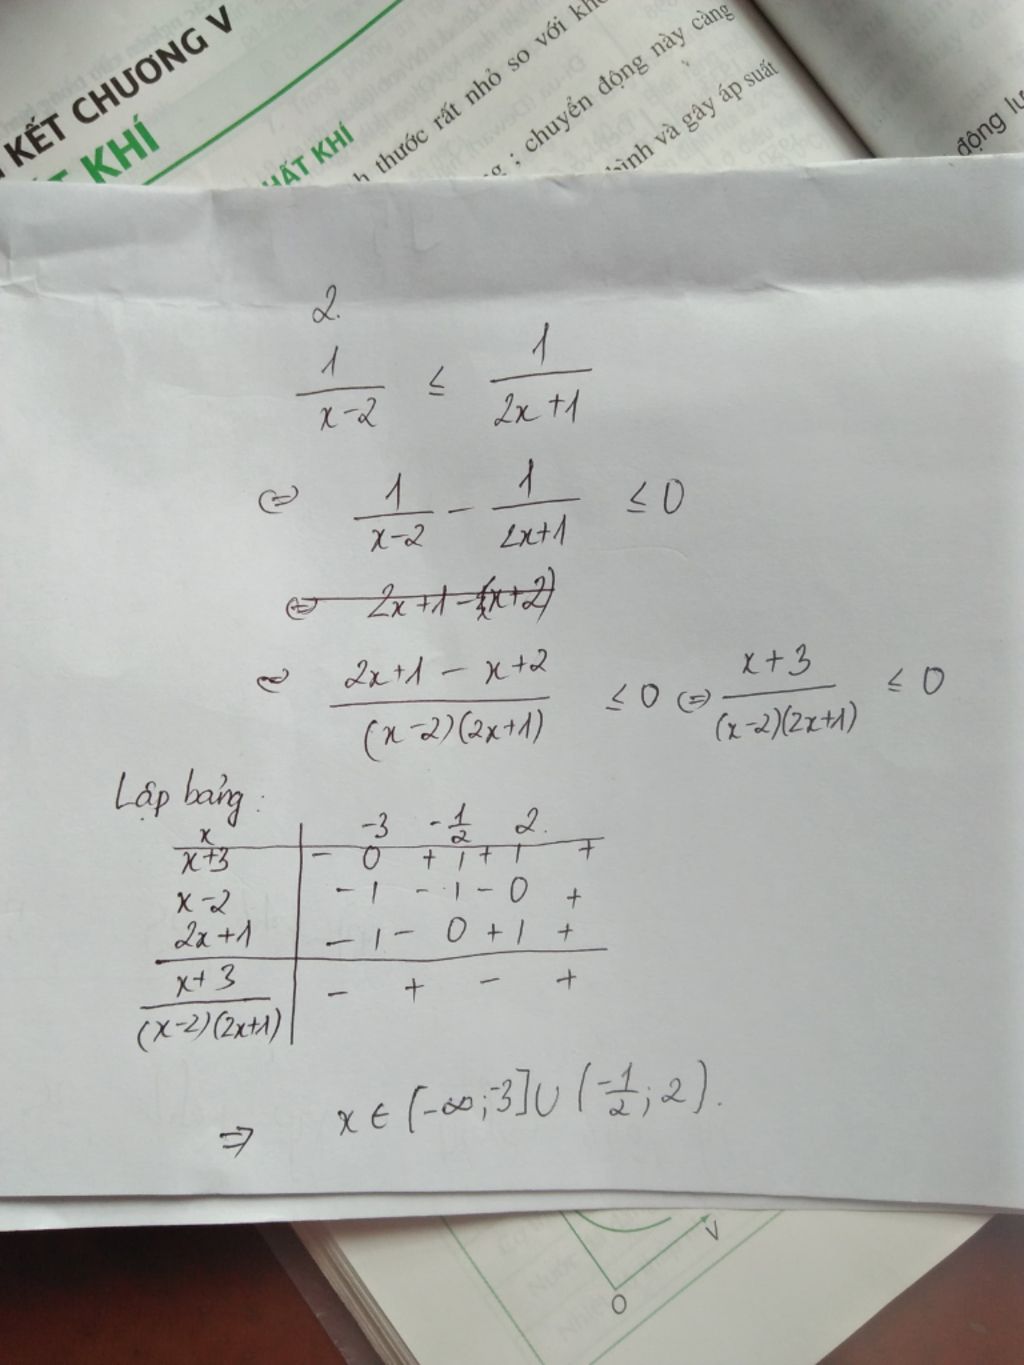 KẾT CHƯƠNG V
KHÍ
HẤT KHÍ
thước rất nhỏ so với
; chuyển động này càng
bình và gây áp suất
động
2.
1/(x-2) ≤ 1/(2x+1)
⇔ 1/(x-2) - 1/(2x+1) ≤ 0
⇔ 2x+1-(x+2)
⇔ (2x+1-x+2)/((x-2)(2x+1)) ≤ 0 ⇔ (x+3)/((x-2)(2x+1)) ≤ 0
Lập bảng:
x -3 -1/2 2.
x+3 - 0 + | + | +
x-2 - | - | - 0 +
2x+1 - | - 0 + | +
(x+3)/((x-2)(2x+1)) - + - +
⇒ x ∈ (-∞;-3] ∪ (-1/2; 2).
V
O